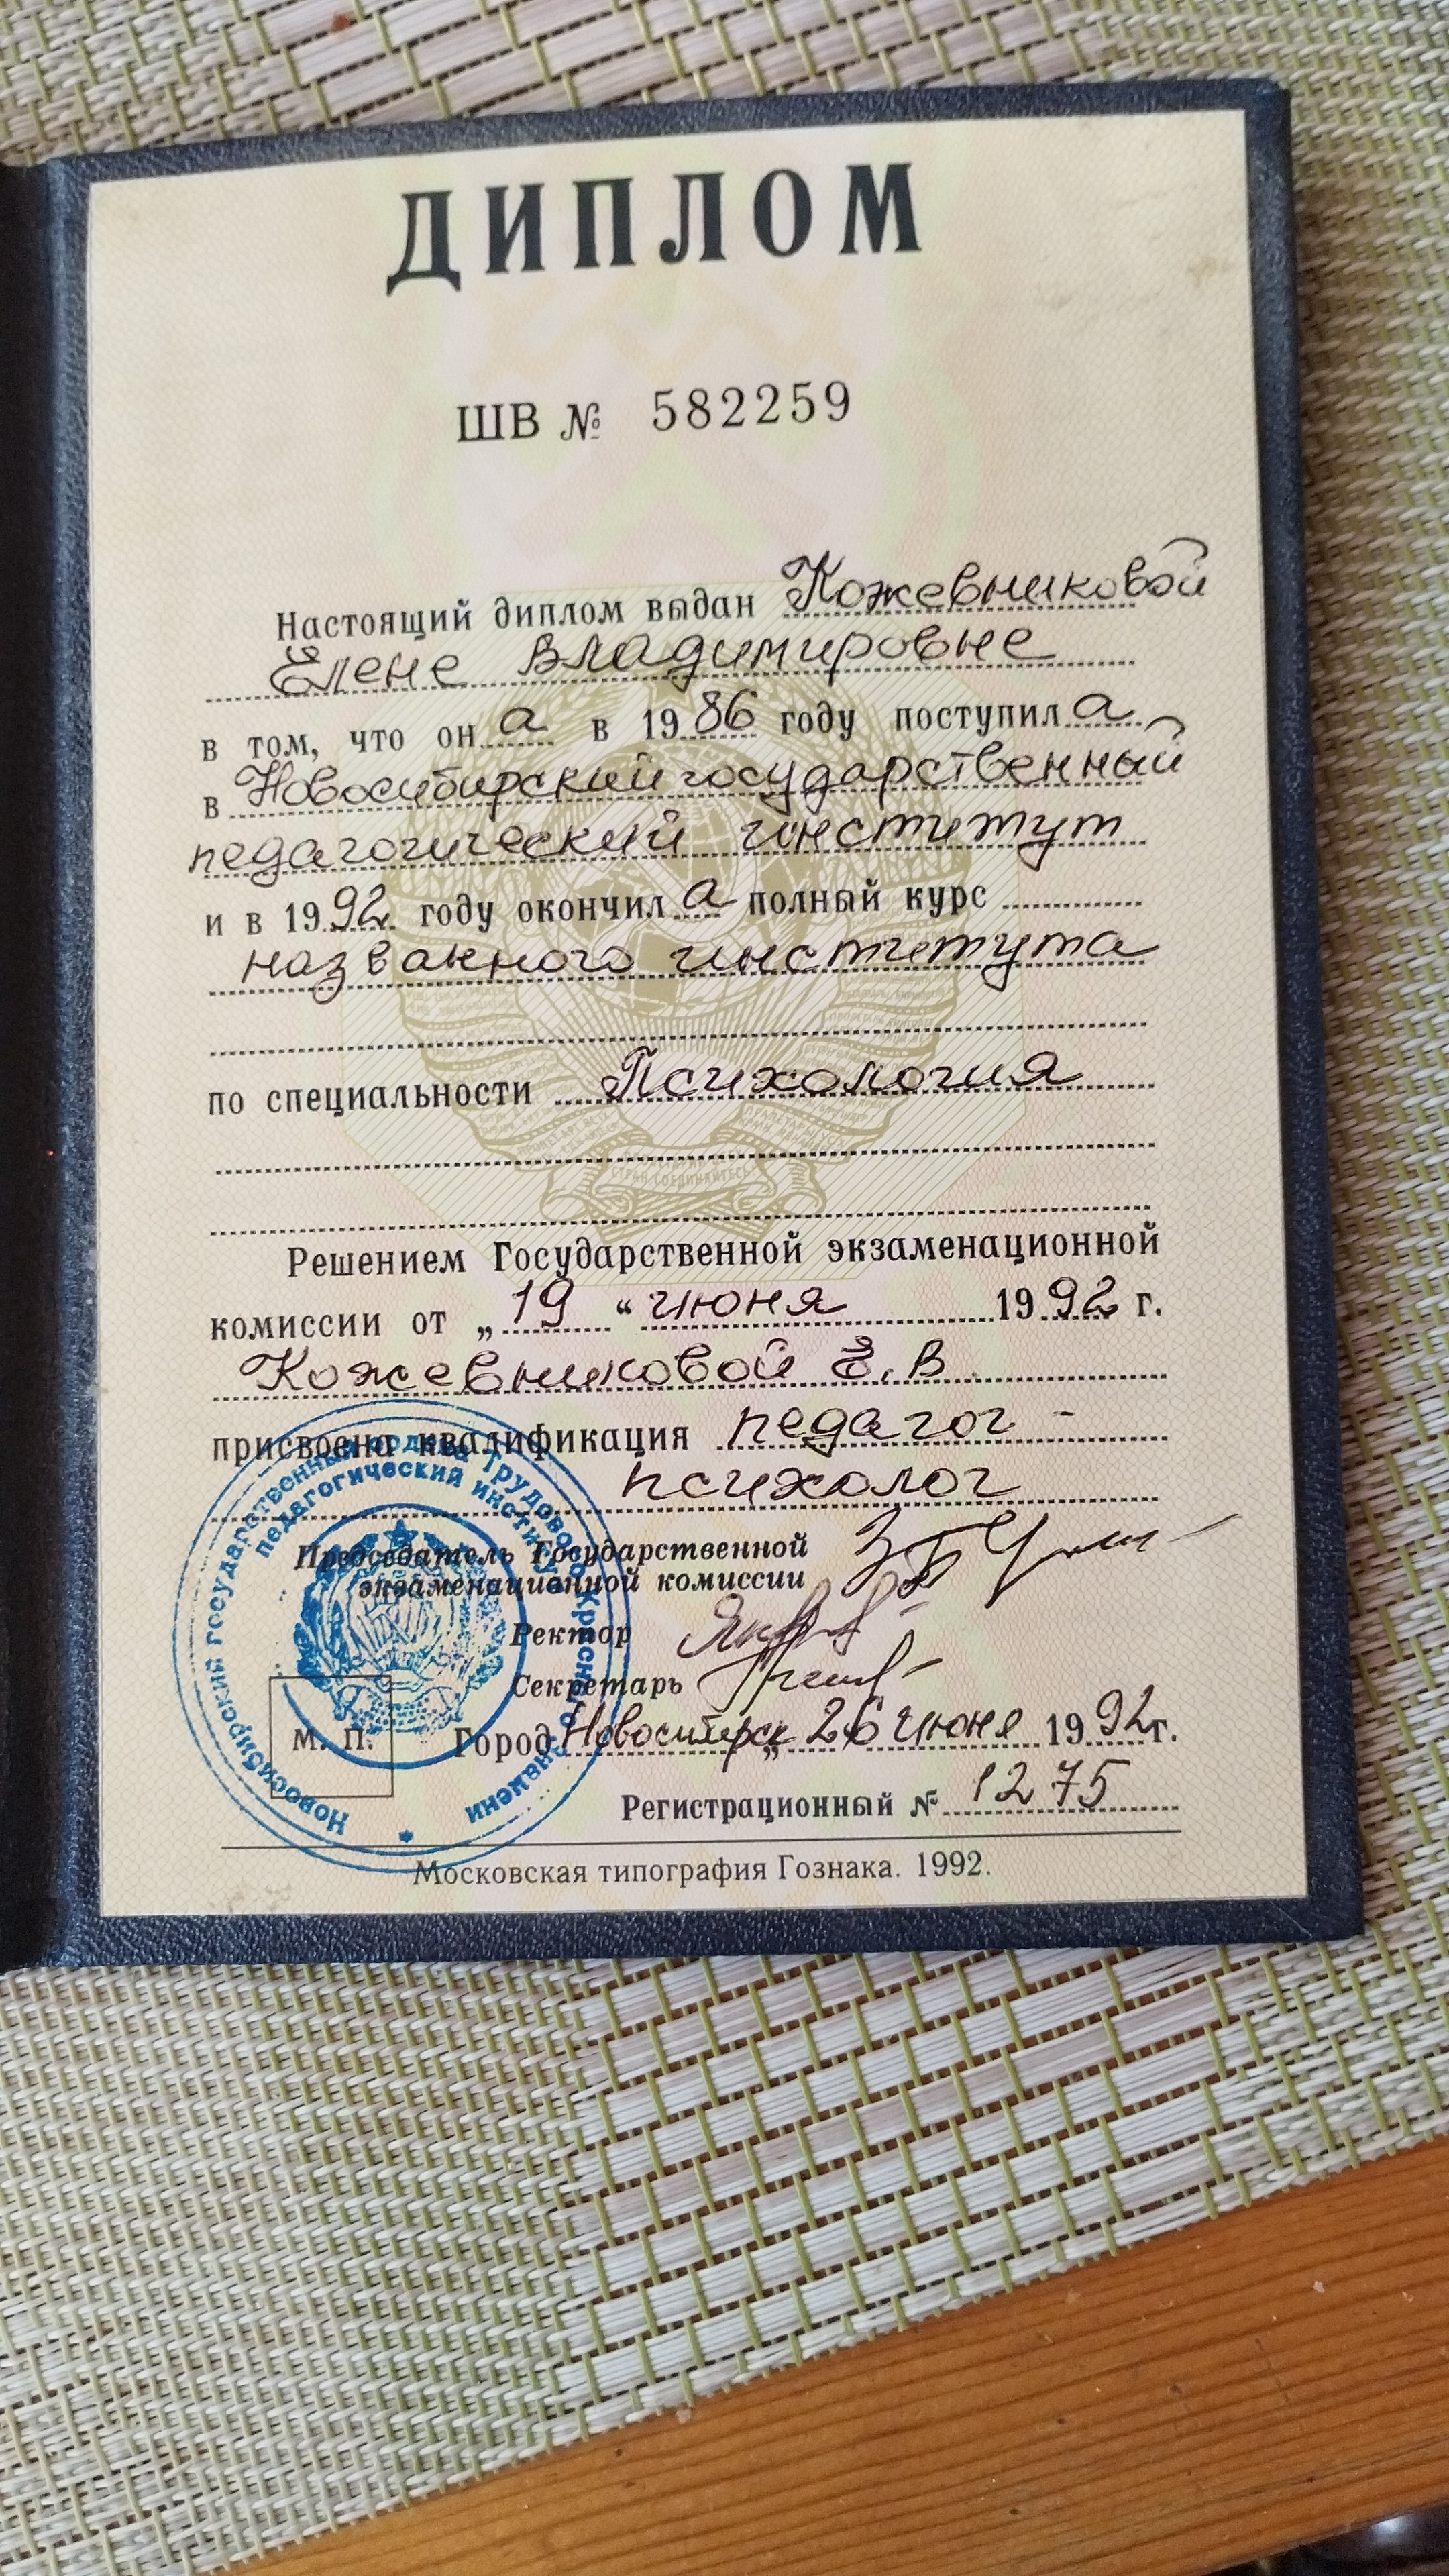 ДИПЛОМ
ШВ № 582259
Настоящий диплом выдан Кожевниковой
Елене Владимировне
в том, что он а в 1986 году поступил а
в Новосибирский государственный
педагогический институт
и в 1992 году окончил а полный курс
названного института
по специальности Психология
Решением Государственной экзаменационной
комиссии от „19“ июня 1992 г.
Кожевниковой Е.В.
присвоена квалификация педагог -
психолог
Председатель Государственной
экзаменационной комиссии
Ректор
Секретарь
М. П. Город Новосибирск „26 июня 1992 г.
Регистрационный № 1275
Московская типография Гознака. 1992.
Новосибирский государственный ордена Трудового Красного Знамени
педагогический институт